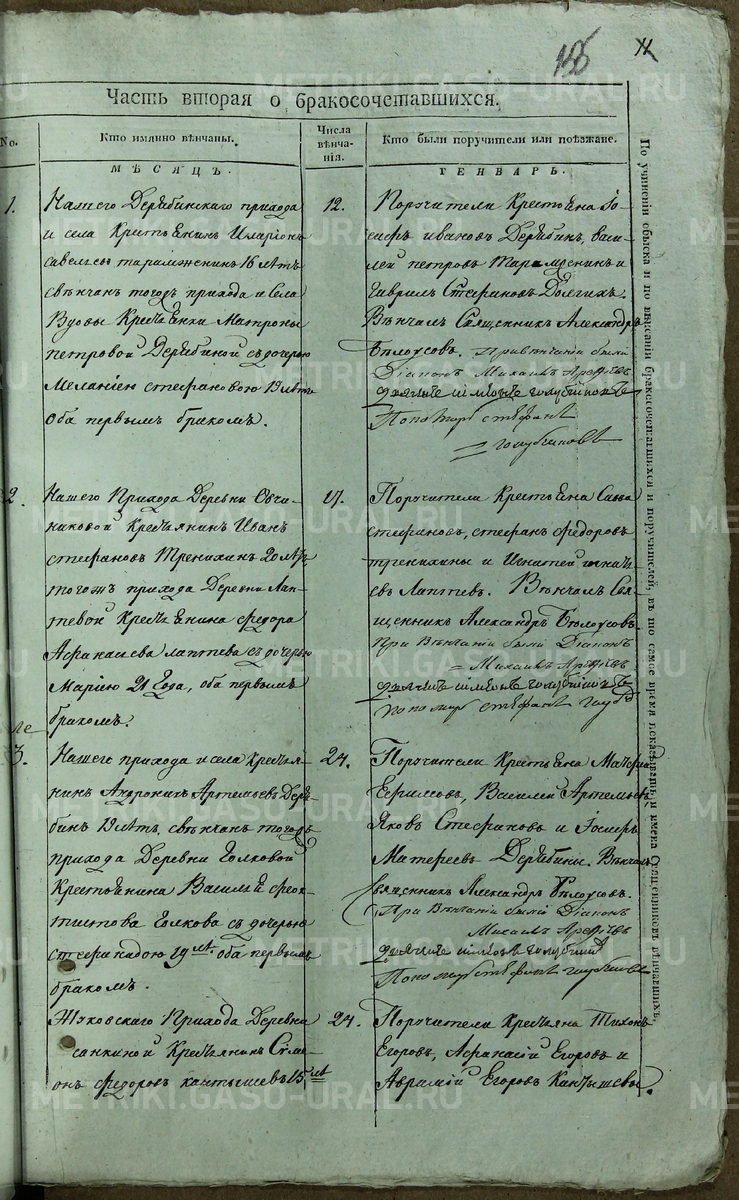 156
11
Часть вторая о бракосочетавшихся.
No.
Кто имянно вѣнчаны.
Числа вѣнча-
нія.
Кто были поручители или поѣзжане.
МѢСЯЦЪ.
ГЕНВАРЬ.
1.
Нашего Дерябинскаго прихода
и села Крестьянинъ Иларіонъ
савельевъ 16 лѣтъ
свѣнчан тогожъ прихода и села
Вдовы Матроны
петровой Дерябиной съ дочерью
Меланіею стефановою 19 лѣтъ
оба первымъ бракомъ.
12.
Поручители Крестьяна Іо-
сифъ ивановъ Дерябинъ, васи-
лей петровъ и
Гаврилъ Стефановъ Долгихъ.
Вѣнчалъ Священникъ Александръ
Бѣлоусовъ. При вѣнчаніи были
Діаконъ Михаилъ
Пономарь стефанъ
голубчиковъ
2.
Нашего Прихода Деревни Овчи-
никовой Крестьянинъ Иванъ
стефановъ Тренихинъ 20 лѣтъ
тогожъ прихода Деревни Лап-
тевой Крестьянина федора
Афанасьева лаптева съ дочерью
Маріею 21 Года, оба первымъ
бракомъ.
17.
Поручители Крестьяна Сава
стефановъ, стефанъ федоровъ
тренихины и Игнатей игнать-
евъ Лаптевъ. Вѣнчалъ Свя-
щенникъ Александръ Бѣлоусовъ
При Вѣнчаніи были Діаконъ
Михаилъ
Пономарь стефанъ голуб
3.
Нашего прихода и села Крестья-
нинъ Андроникъ Артемьевъ Деря-
бинъ 19 лѣтъ, свѣнчан тогожъ
прихода Деревни Голковой
Крестьянина Василья феок-
тистова Голкова съ дочерью
стефанидою 19 лѣт. оба первымъ
бракомъ.
24.
Поручители Крестьяна
Ефимовъ, Василей Артемьевъ,
Яковъ Стефановъ и Іосифъ
Дерябины. Вѣнчалъ
Священникъ Александръ Бѣлоусовъ.
При Вѣнчаніи были Діаконъ
Михаилъ
Пономарь стефанъ
Жуковскаго Прихода Деревни
санкиной Крестьянинъ Симе-
онъ федоровъ кантышевъ 15 лѣт
24.
Поручители Крестьяна Тихонъ
Егоровъ, Афанасій Егоровъ и
Аврамій Егоровъ Кантышевы.
По учиненіи обыска и по взысканіи бракосочетавшихся и поручителей, въ то самое время показывать и имена Священниковъ вѣнчавшихъ.
METRIKI.GASO-URAL.RU